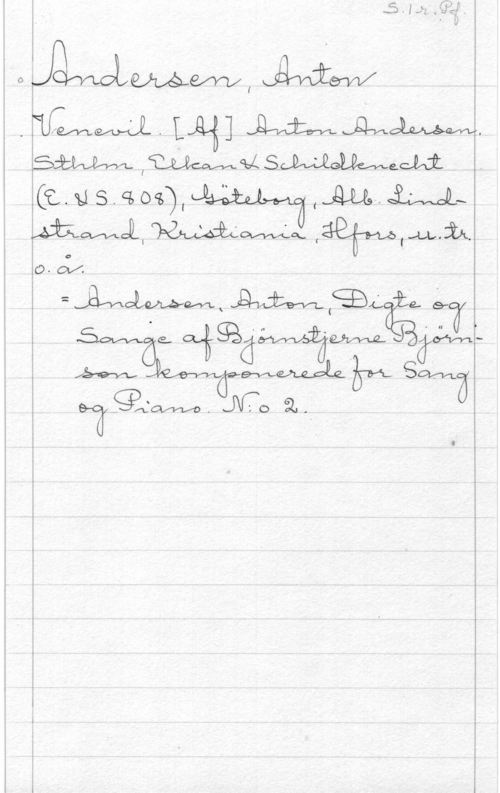 S. 1 r. Pf.
Andersen, Anton
Venevil. [Af] Anton Andersen.
Sthlm, Elkan & Schildknecht
(E. & S. 808), Göteborg, Alb. Lind-
strand, Kristiania, Hfors, u. tr.
o. å.
= Andersen, Anton, Digte og
Sange af Björnstjerne Björn-
son komponerede for Sang
og Piano. N:o 2.